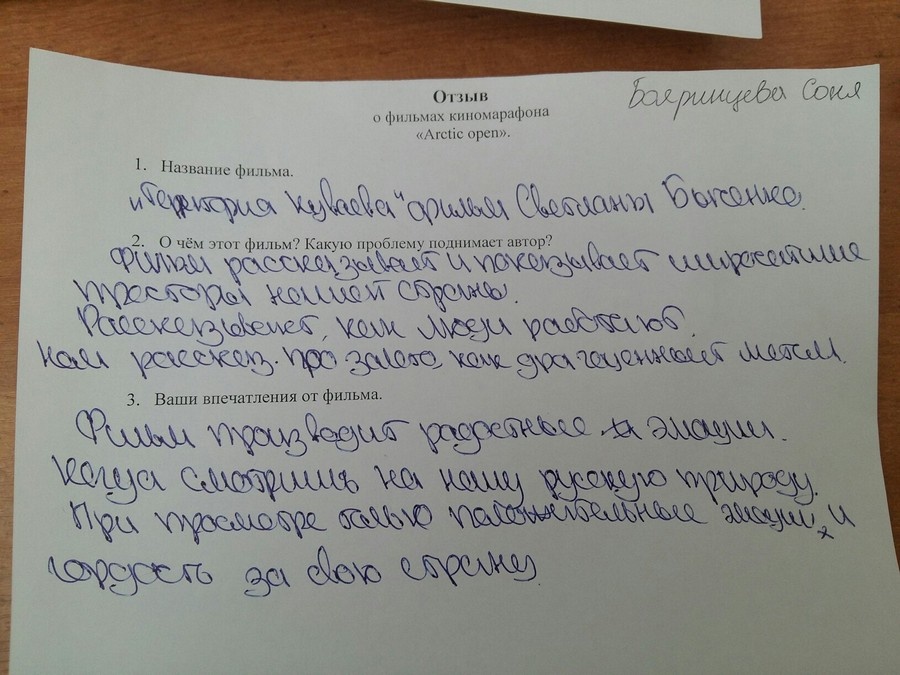 Отзыв
о фильмах киномарафона
«Arctic open».
Бояринцева Соня
1. Название фильма.
"Территория Куваева" фильм Светланы Быченко.
2. О чём этот фильм? Какую проблему поднимает автор?
Фильм рассказывает и показывает широчайшие
просторы нашей страны.
Рассказывает, как люди работают.
Нам рассказ. про золото, как драгоценный метал.
3. Ваши впечатления от фильма.
Фильм производит радостные эмоции.
Когда смотришь на нашу русскую природу.
При просмотре только положительные эмоции, и
гордость за свою страну.